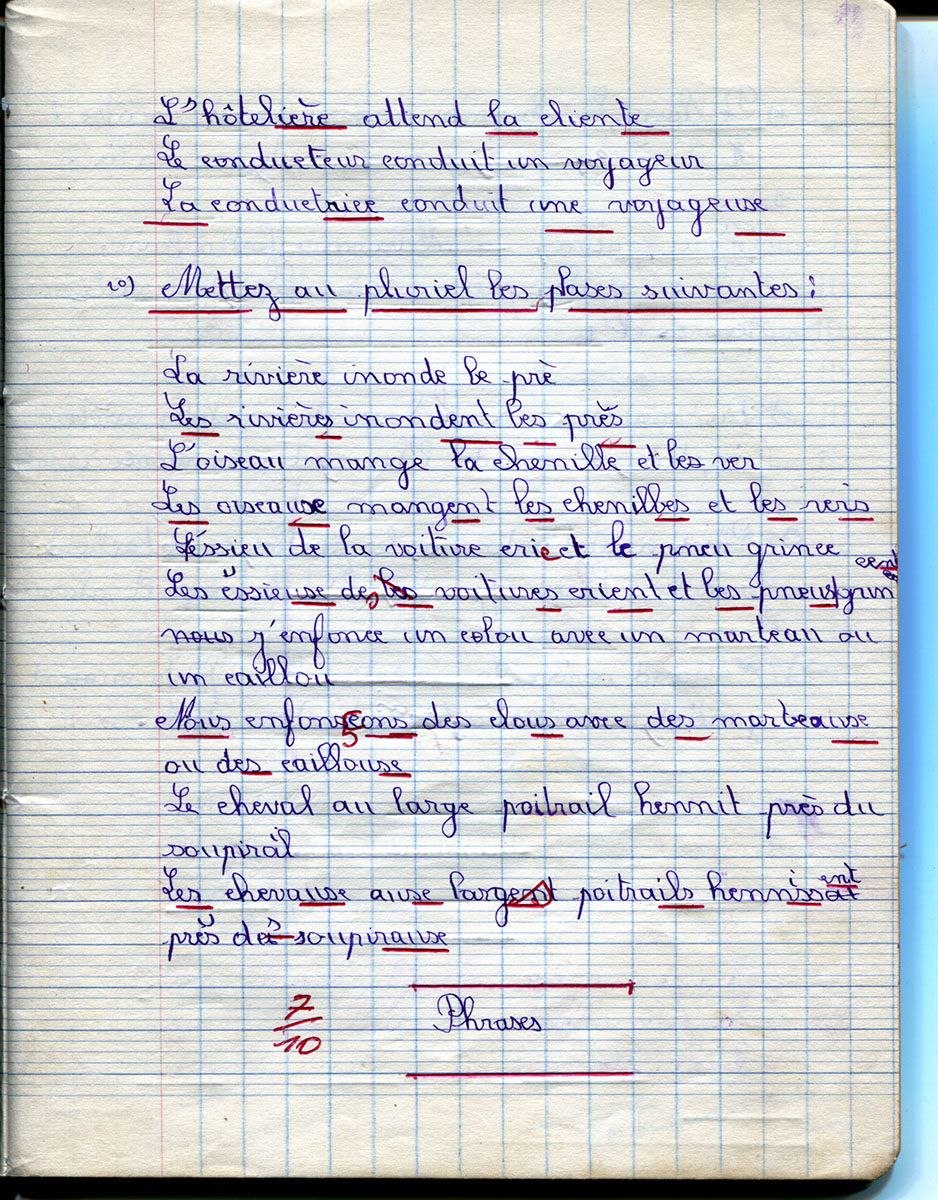 L'hôtelière attend la cliente
Le conducteur conduit un voyageur
La conductrice conduit une voyageuse
2º) Mettez au pluriel les frases suivantes :
La rivière inonde le prè
Les rivières inondent les près
L'oiseau mange la chenille et les ver
Les oiseause mangent les chenilles et les vers
L'éssieu de la voiture crie et le pneu grince
Les éssieuse de les voitures crient et les pneus grin
cent
nous j'enfonce un colou avec un marteau ou
un caillou
Nous enfonseons des clous avec des marteause
ou des caillouse
Le cheval au large poitrail hennit près du
soupirail
Les chevause ause largent poitrails hennissat
ent
près des soupirause
7/10
Phrases